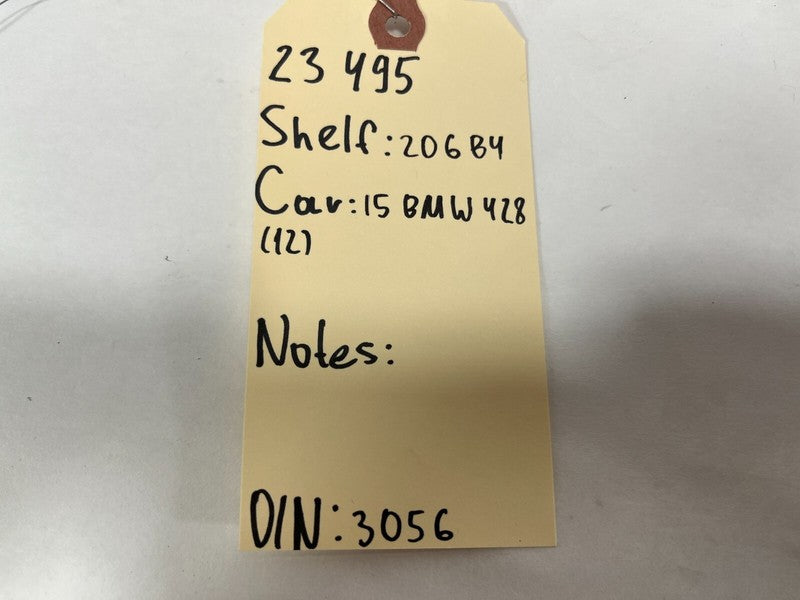 23 495
Shelf: 206 B4
Car: 15 BMW 428
(12)
Notes:
D/N: 3056